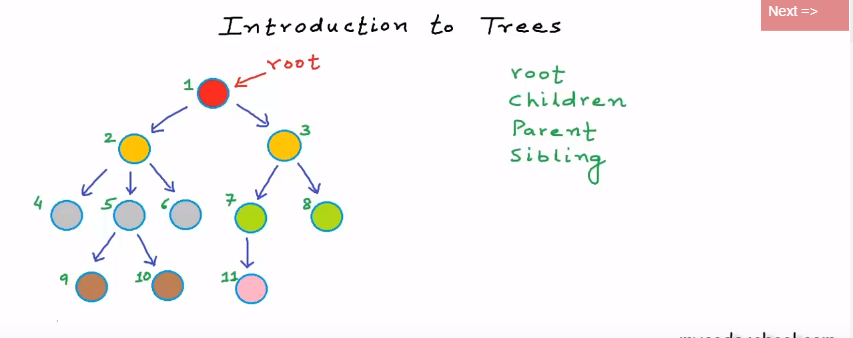 Next =>
Introduction to Trees
root
1
2
3
4
5
6
7
8
9
10
11
root
Children
Parent
Sibling